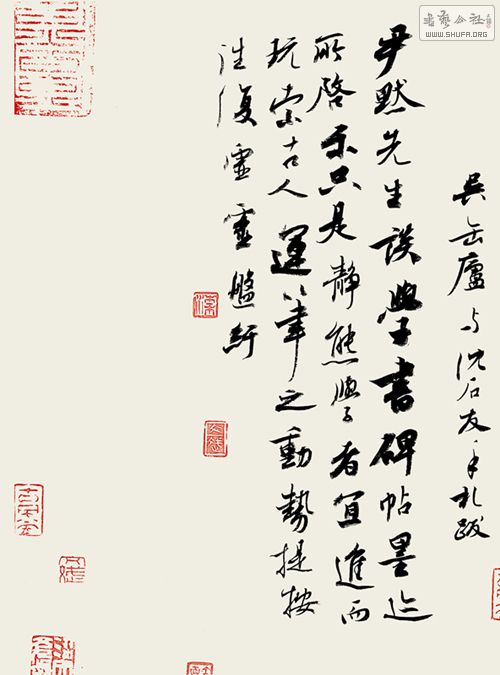 書藝公社
WWW.SHUFA.ORG
吳缶廬与沈石友手札跋
尹默先生談學書碑帖墨迹
所啓示只是靜態學者宜進而
玩索古人運筆之動勢提按
往復虛靈盤紆